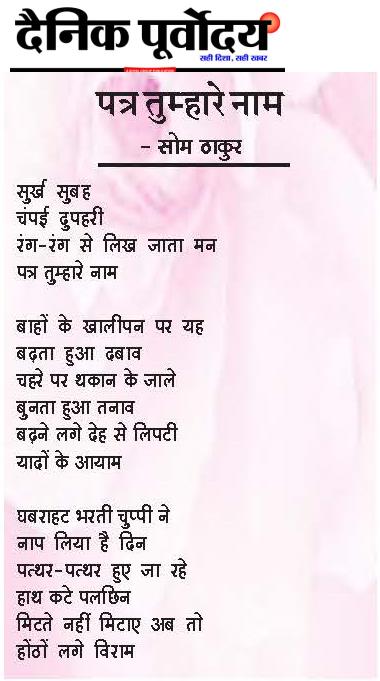 दैनिक पूर्वोदय
सही दिशा, सही खबर
पत्र तुम्हारे नाम
- सोम ठाकुर
सुर्ख सुबह
चंपई दुपहरी
रंग-रंग से लिख जाता मन
पत्र तुम्हारे नाम
बाहों के खालीपन पर यह
बढ़ता हुआ दबाव
चहरे पर थकान के जाले
बुनता हुआ तनाव
बढ़ने लगे देह से लिपटी
यादों के आयाम
घबराहट भरती चुप्पी ने
नाप लिया है दिन
पत्थर-पत्थर हुए जा रहे
हाथ कटे पलछिन
मिटते नहीं मिटाए अब तो
होंठों लगे विराम